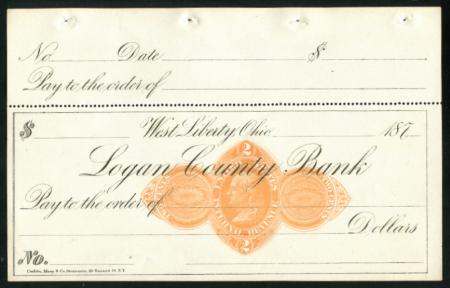 No. Date $
Pay to the order of
$ West Liberty, Ohio 187
Logan County Bank
Pay to the order of
Dollars
No.
2
INTERNAL REVENUE
2